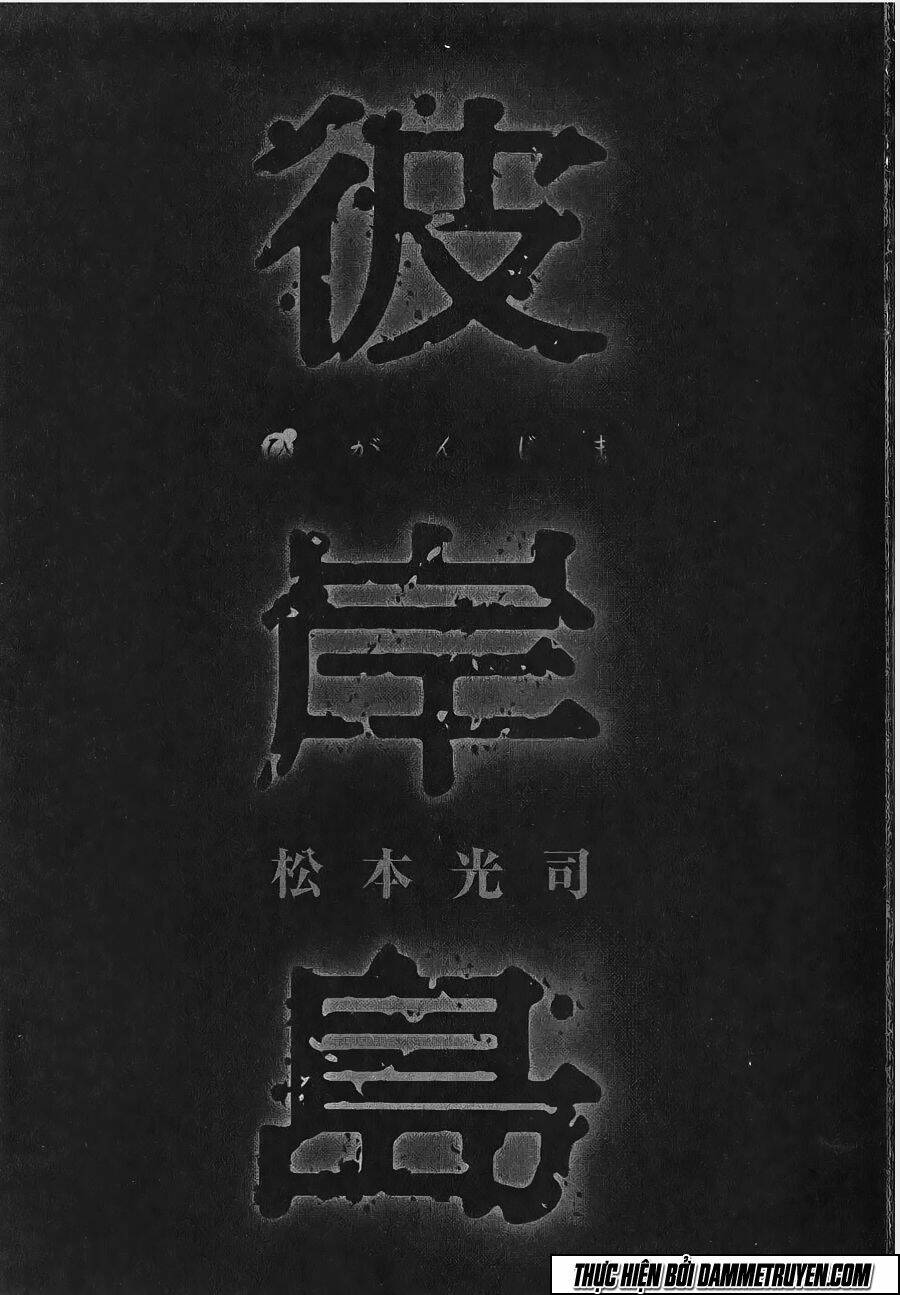 彼
ひがんじま
岸
松本光司
島
THỰC HIỆN BỞI DAMMETRUYEN.COM